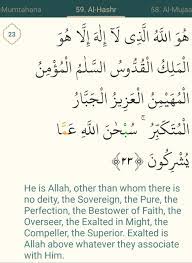 Mumtahana 59. Al-Hashr 58. Al-Mujaa
23
هُوَ اللَّهُ الَّذِى لَآ إِلَٰهَ إِلَّا هُوَ
الْمَلِكُ الْقُدُّوسُ السَّلَٰمُ الْمُؤْمِنُ
الْمُهَيْمِنُ الْعَزِيزُ الْجَبَّارُ
الْمُتَكَبِّرُ ۚ سُبْحَٰنَ اللَّهِ عَمَّا
يُشْرِكُونَ ﴿٢٣﴾
He is Allah, other than whom there is
no deity, the Sovereign, the Pure, the
Perfection, the Bestower of Faith, the
Overseer, the Exalted in Might, the
Compeller, the Superior. Exalted is
Allah above whatever they associate
with Him.